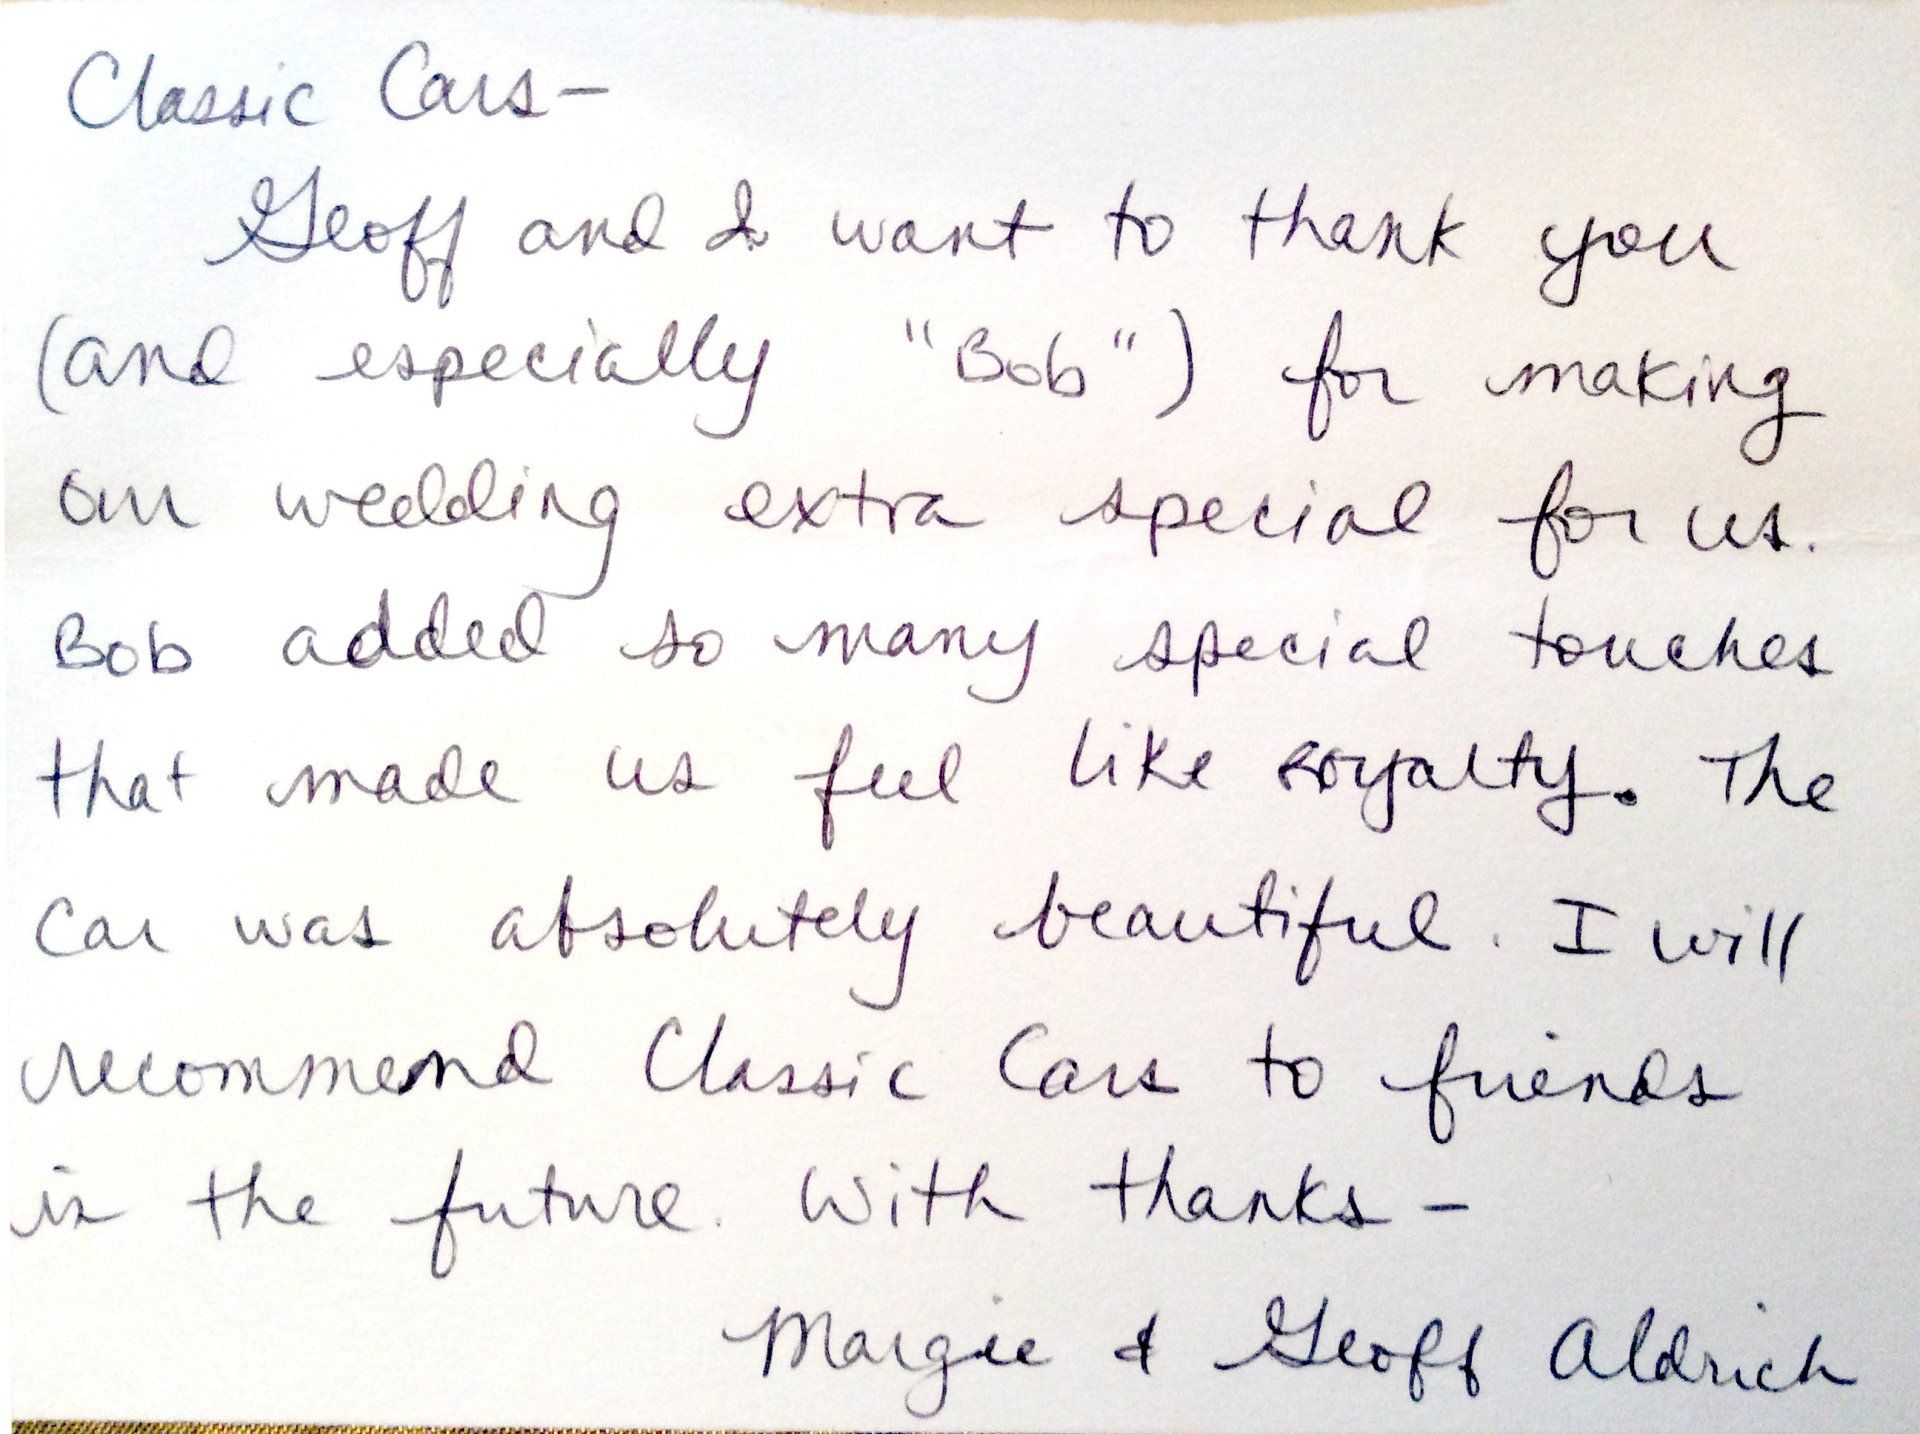 Classic Cars-
Geoff and I want to thank you
(and especially "Bob") for making
our wedding extra special for us.
Bob added so many special touches
that made us feel like royalty. The
car was absolutely beautiful. I will
recommend Classic Cars to friends
in the future. With thanks -
Margie & Geoff Aldrich